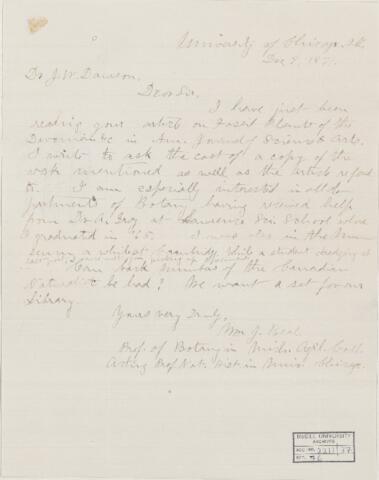 University of Chicago, Ill.
Dec 9, 1871.
Dr. J. W. Dawson,
Dear Sir,
I have just been
reading your article on Fossil Plants of the
Devonian &c in Am. Journal of Science & Arts.
I write to ask the cost of a copy of the
work mentioned as well as the article refered
to. I am especially interested in all de-
partments of Botany having received help
from Dr. A. Gray at Lawrence Sci School where
I graduated in '65. I was also in the Mu-
seum a while at Cambridge while a student
Can back numbers of the Canadian
Naturalist be had? We want a set for our
Library.
Yours very Truly,
Wm J. Beal
Prof. of Botany in Mich. Agl. Coll.
Acting Prof Nat. Hist. in Univ. Chicago.
McGILL UNIVERSITY
ARCHIVES
ACC. NO.
REF.